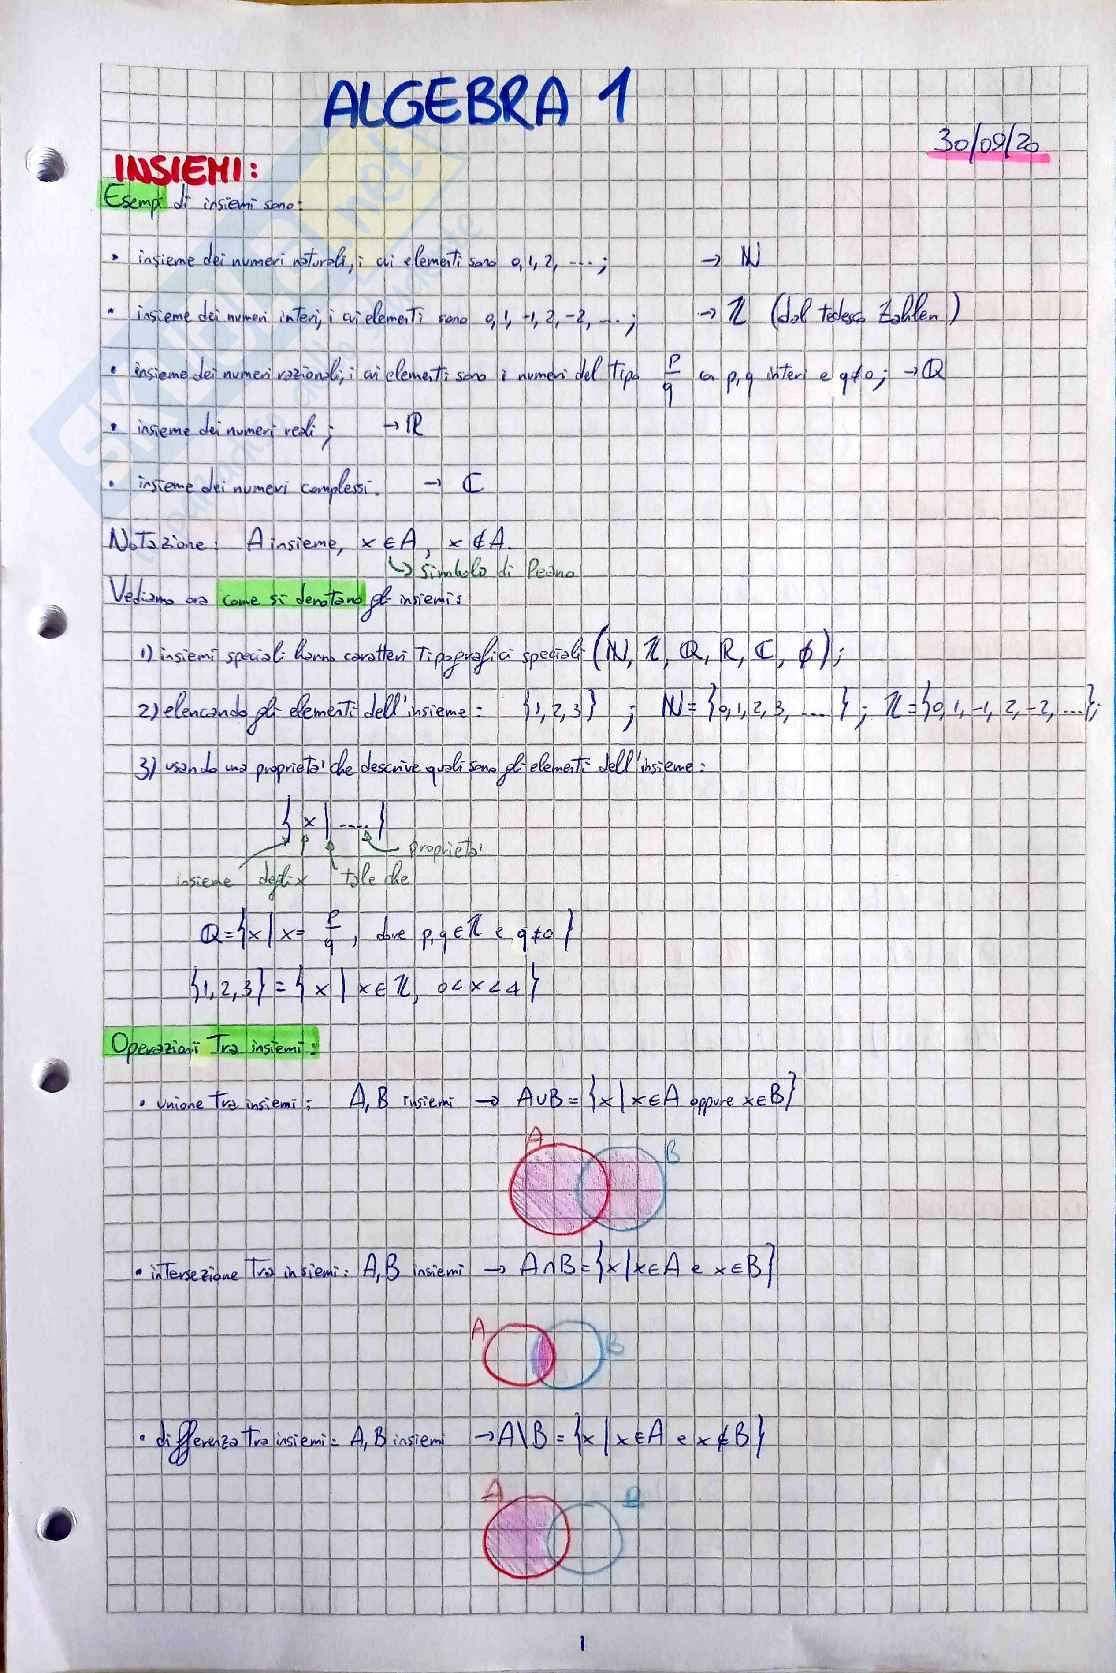 ALGEBRA 1
30/09/20
INSIEMI:
Esempi di insiemi sono:
• insieme dei numeri naturali, i cui elementi sono 0, 1, 2, ...; → ℕ
• insieme dei numeri interi, i cui elementi sono 0, 1, -1, 2, -2, ...; → ℤ (dal tedesco Zahlen)
• insieme dei numeri razionali, i cui elementi sono i numeri del tipo p/q con p, q interi e q≠0; → ℚ
• insieme dei numeri reali; → ℝ
• insieme dei numeri complessi. → ℂ
Notazione: A insieme, x ∈ A, x ∉ A.
↳ simbolo di Peano
Vediamo ora come si denotano gli insiemi:
1) insiemi speciali hanno caratteri tipografici speciali (ℕ, ℤ, ℚ, ℝ, ℂ, ∅);
2) elencando gli elementi dell'insieme: {1, 2, 3} ; ℕ = {0, 1, 2, 3, ....} ; ℤ = {0, 1, -1, 2, -2, ...};
3) usando una proprietà che descrive quali sono gli elementi dell'insieme:
{ x | .... }
proprietà
insieme degli x tale che
ℚ = {x | x = p/q, dove p, q ∈ ℤ e q≠0 }
{1, 2, 3} = { x | x ∈ ℤ, 0 < x < 4 }
Operazioni tra insiemi:
• unione tra insiemi: A, B insiemi → A∪B = {x | x∈A oppure x∈B}
A
B
• intersezione tra insiemi: A, B insiemi → A∩B = {x | x∈A e x∈B}
A
B
• differenza tra insiemi: A, B insiemi → A\B = {x | x∈A e x∉B}
A
B
1
SKUOLA.net